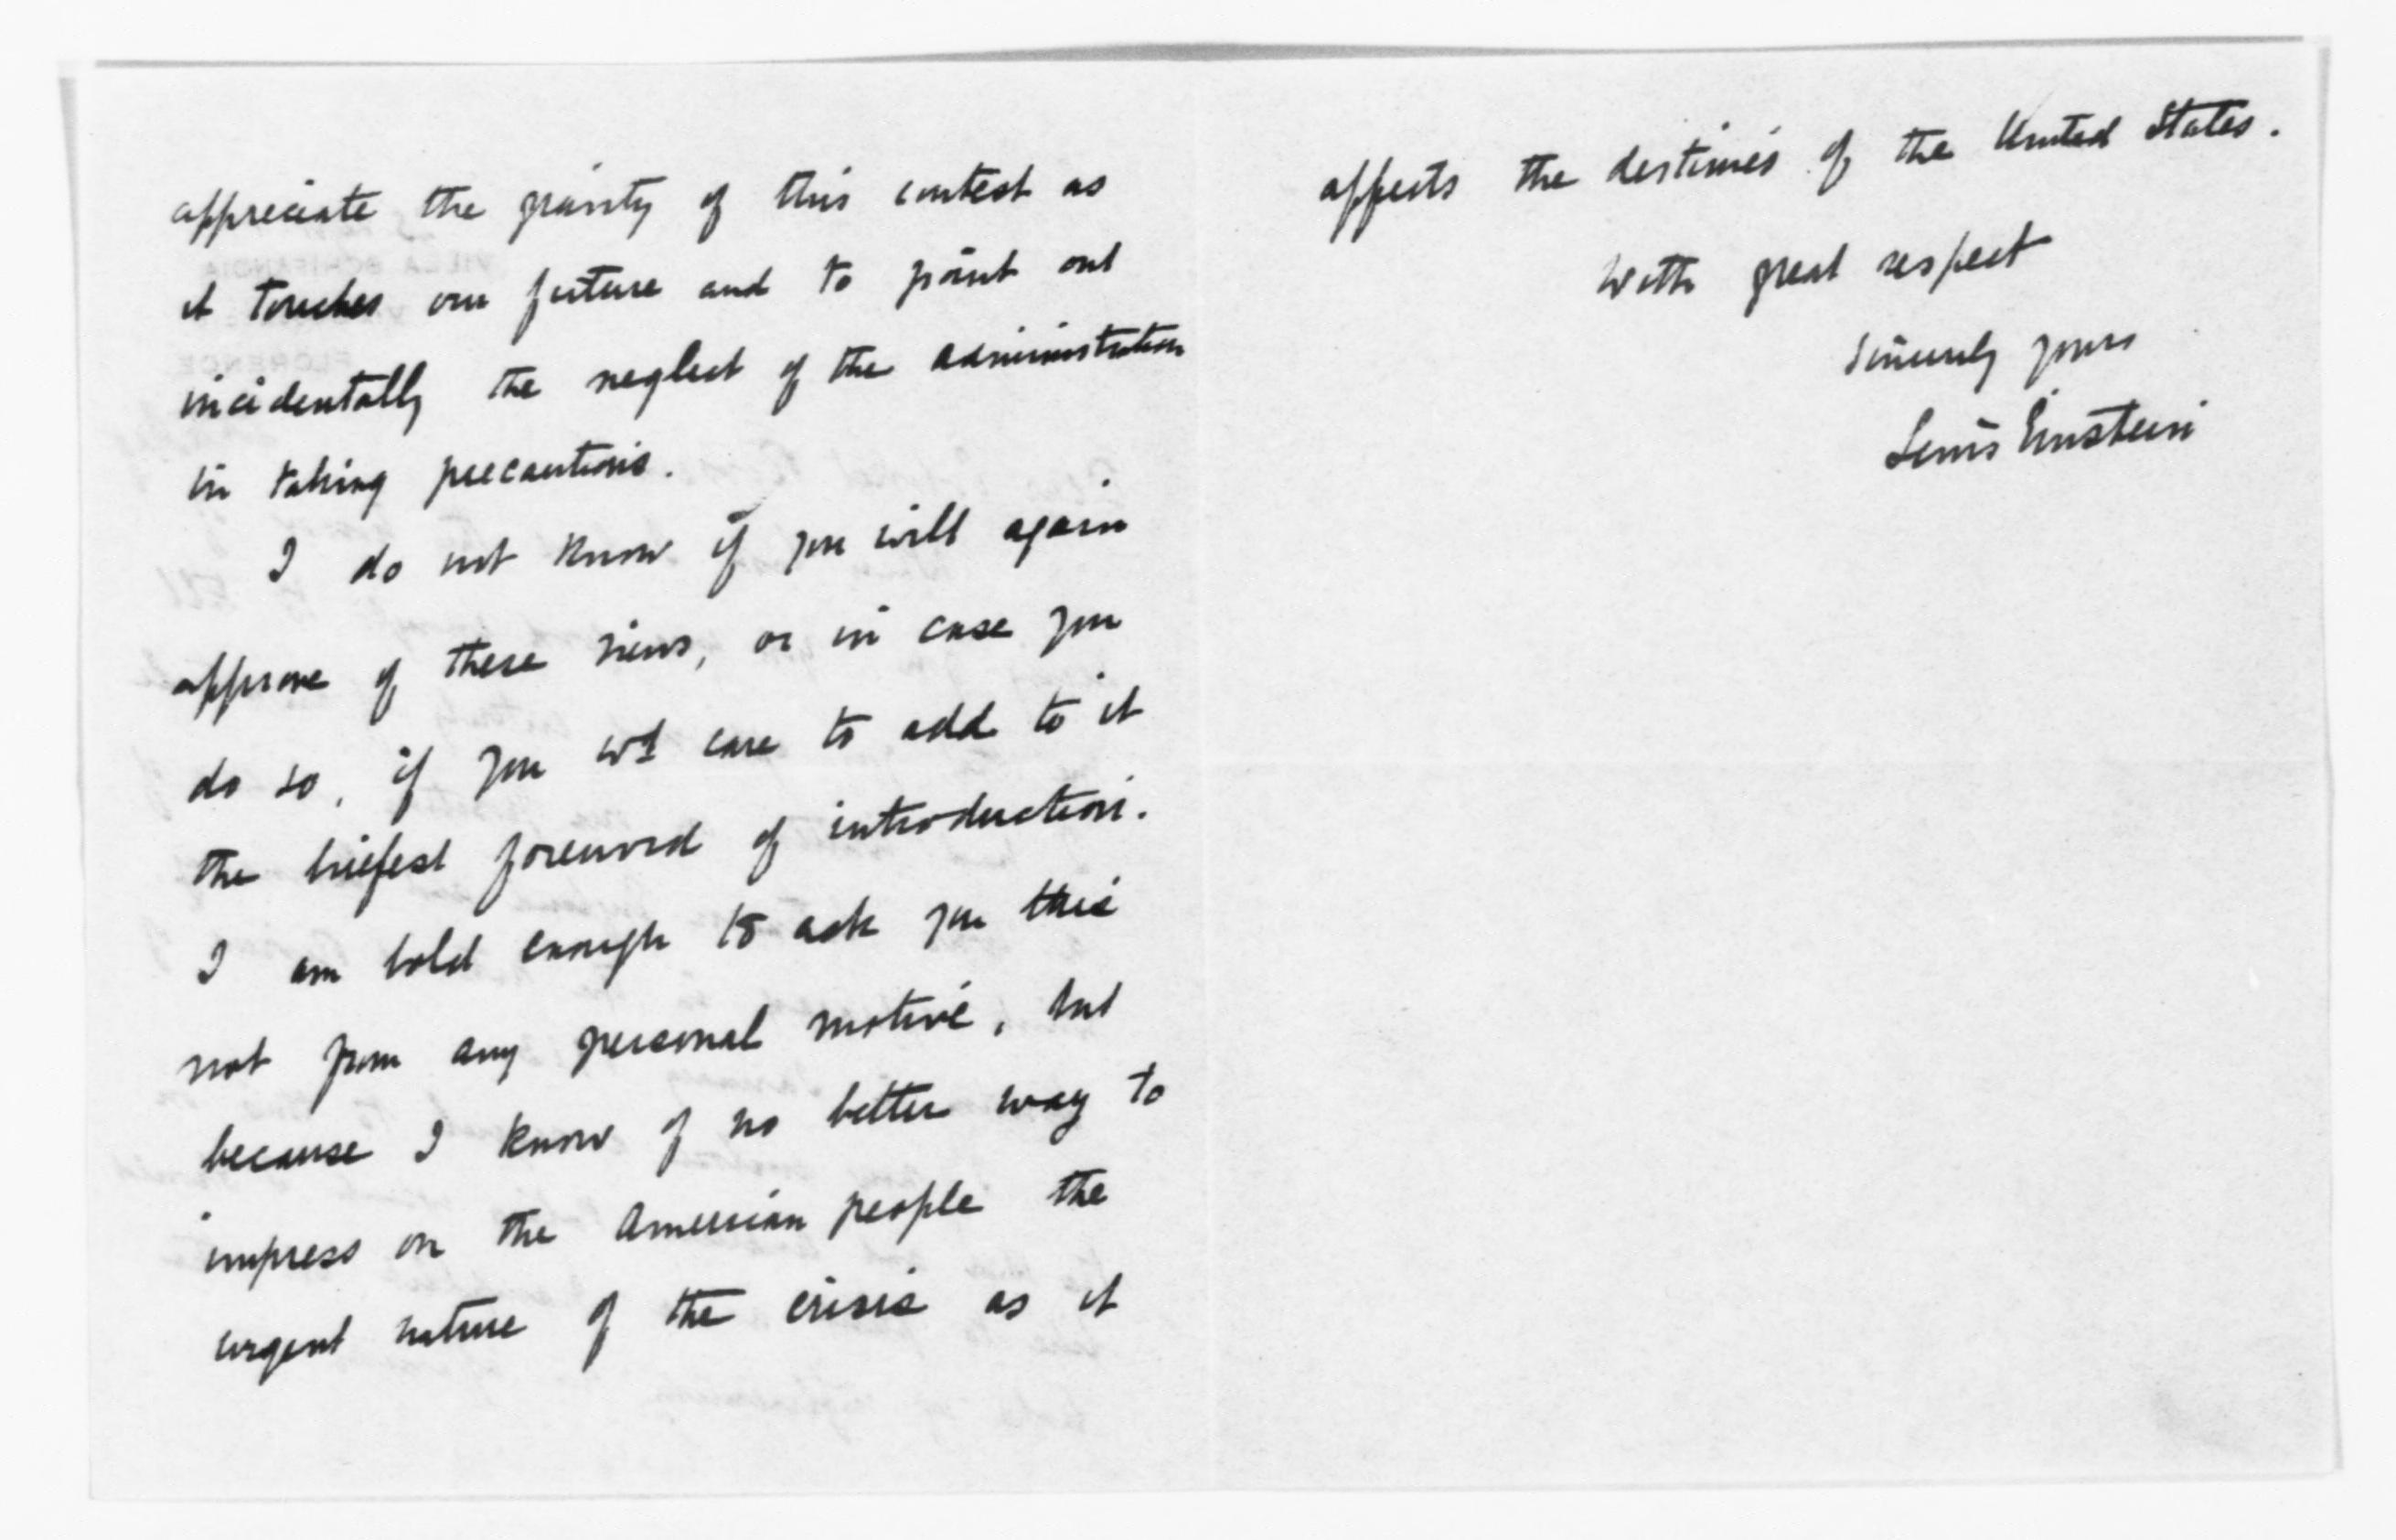 appreciate the gravity of this contest as
it touches our future and to point out
incidentally the neglect of the administration
in taking precautions.
I do not know if you will again
approve of these views, or in case you
do so, if you wd care to add to it
the briefest foreword of introduction.
I am bold enough to ask you this
not from any personal motive, but
because I know of no better way to
impress on the American people the
urgent nature of the crisis as it
affects the destinies of the United States.
With great respect
Sincerely yours
Lewis Einstein
VILLA SCHIFANOIA
FLORENCE